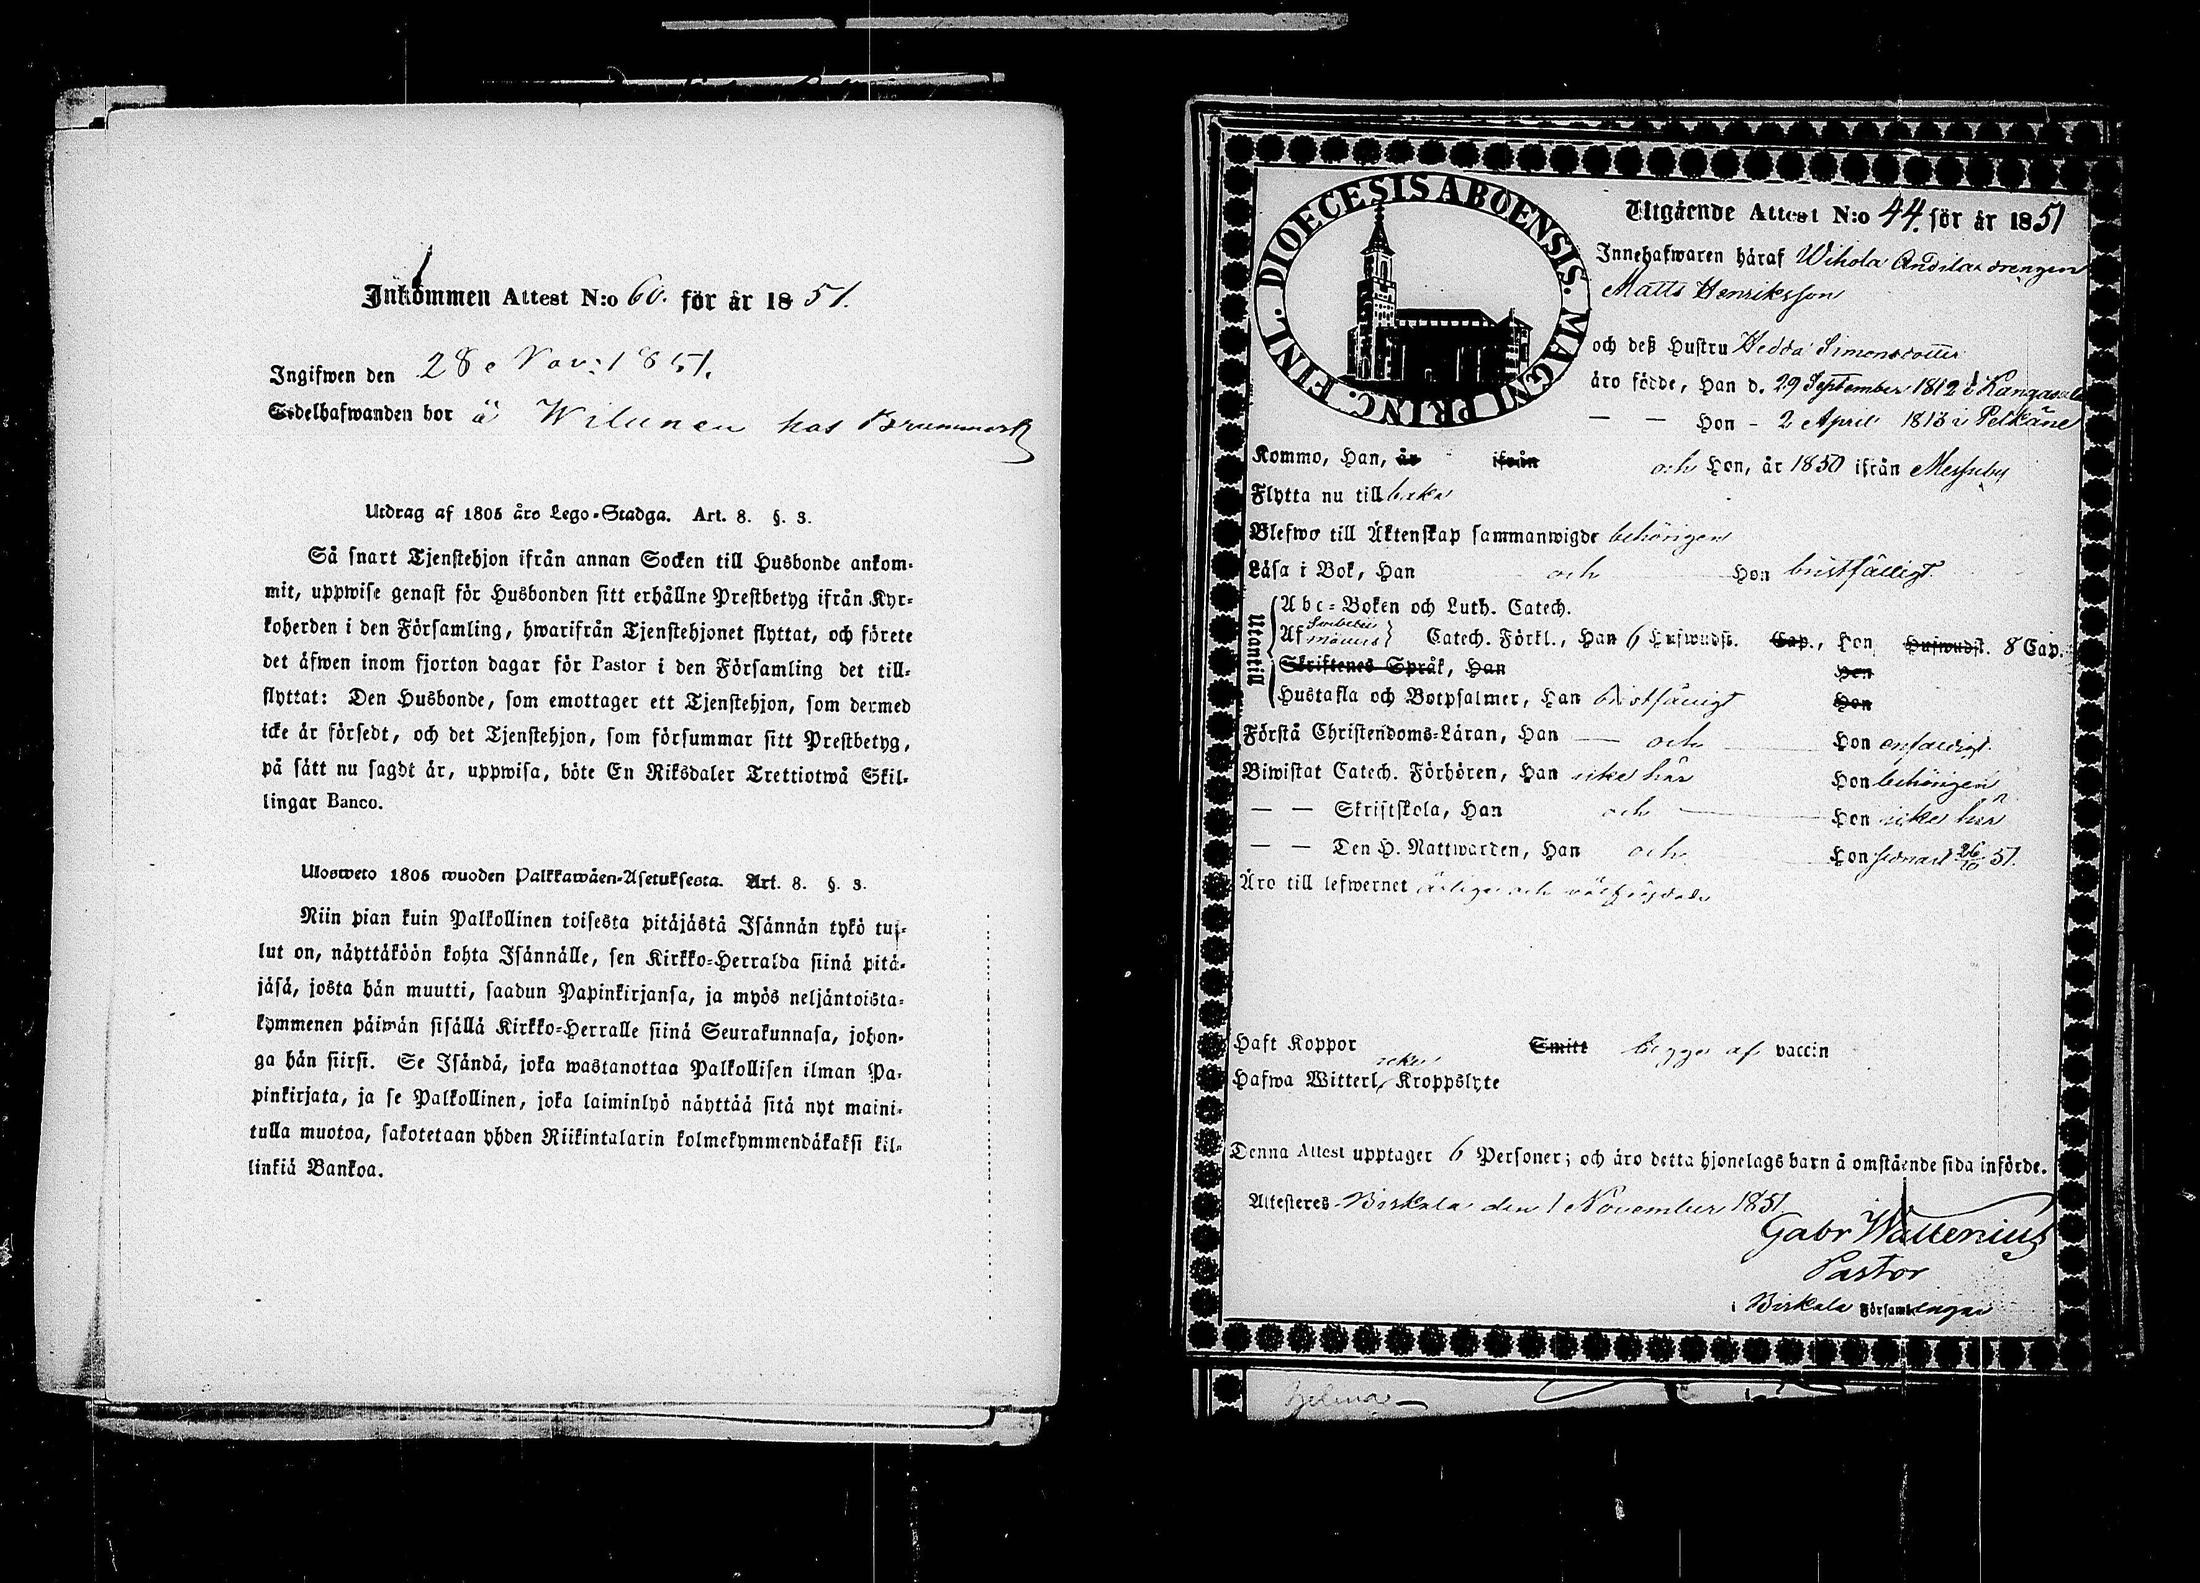 Inkommen Attest N:o 60. för år 1851.
Ingifwen den 28 Nov: 1851.
Sedelhafwanden bor å Wilunen hos Brummark
Utdrag af 1805 års Lego-Stadga. Art. 8. §. 3.
Så snart Tjenstehjon ifrån annan Socken till Husbonde ankom-
mit, uppwise genast för Husbonden sitt erhållne Prestbetyg ifrån Kyr-
koherden i den Församling, hwarifrån Tjenstehjonet flyttat, och förete
det äfwen inom fjorton dagar för Pastor i den Församling det till-
flyttat: Den Husbonde, som emottager ett Tjenstehjon, som dermed
icke är försedt, och det Tjenstehjon, som försummar sitt Prestbetyg,
på sätt nu sagdt är, uppwisa, böte En Riksdaler Trettiotwå Skil-
lingar Banco.
Ulosweto 1805 wuoden Palkkawäen-Asetuksesta. Art. 8. §. 3.
Niin pian kuin Palkollinen toisesta pitäjästä Isännän tykö tul-
lut on, näyttäköön kohta Isännälle, sen Kirkko-Herralda siinä pitä-
jäsä, josta hän muutti, saadun Papinkirjansa, ja myös neljäntoista-
kymmenen päiwän sisällä Kirkko-Herralle siinä Seurakunnasa, johon-
ga hän siirsi. Se Isändä, joka wastanottaa Palkollisen ilman Pa-
pinkirjata, ja se Palkollinen, joka laiminlyö näyttää sitä nyt maini-
tulla muotoa, sakotetaan yhden Riikintalarin kolmekymmendäkaksi kil-
linkiä Bankoa.
DIOECESIS ABOENSIS. MAGNI PRINC. FINL.
Utgående Attest N:o 44. för år 1851
Innehafwaren häraf Wihola Andila drengen
Matts Henriksson
och deß Hustru Hedda Simonsdotter
äro födde, Han d. 29 September 1812 i Kangasala
— — Hon - 2 April 1813 i Pelkäne
Kommo, Han, år ifrån och Hon, år 1850 ifrån Messuby
Flytta nu tillbaka
Blefwo till Äktenskap sammanwigde behörigen
Läsa i Bok, Han och Hon bristfälligt
Utantill
Abc-Boken och Luth. Catech.
Af Svebelii Möllers Catech. Förkl., Han 6 Hufwudst. Cap., Hon Hufwudst. 8 Cap.
Skriftenes Språk, Han Hon
Hustafla och Botpsalmer, Han bristfälligt Hon
Förstå Christendoms-Läran, Han — och Hon enfaldigt
Biwistat Catech. Förhören, Han icke här Hon behörigen
— — Skriftskola, Han och Hon icke här
— — Den H. Nattwarden, Han och Hon senast 26/10 51.
Äro till lefwernet ärlige och välfrejdade
Haft Koppor Smitt begge af vaccin
Hafwa Witterl. icke Kroppslyte
Denna Attest upptager 6 Personer; och äro detta hjonelags barn å omstående sida införde.
Attesteres Birkala den 1 November 1851
Gabr Wallenius
Pastor
i Birkala Församlingar